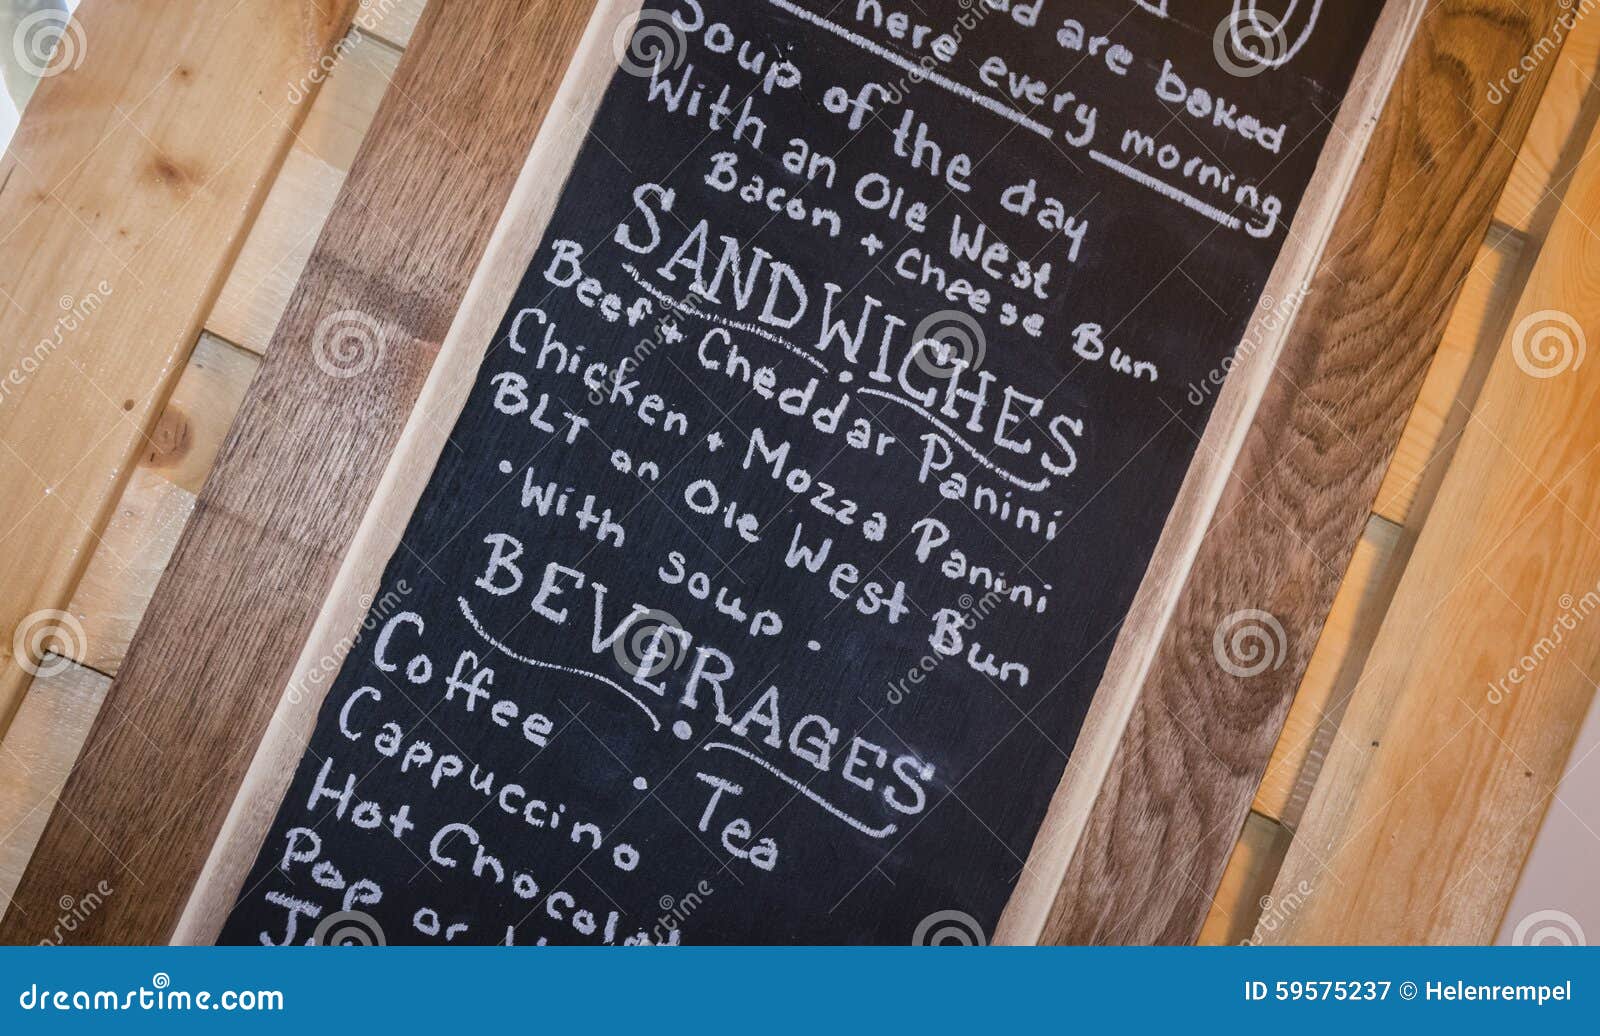 are baked
here every morning
Soup of the day
With an Ole West
Bacon + Cheese Bun
SANDWICHES
Beef + Cheddar Panini
Chicken + Mozza Panini
BLT on Ole West Bun
• With soup •
BEVERAGES
Coffee • Tea
Cappuccino
Hot Chocolat
Pop or
dreamstime.com
ID 59575237 © Helenrempel